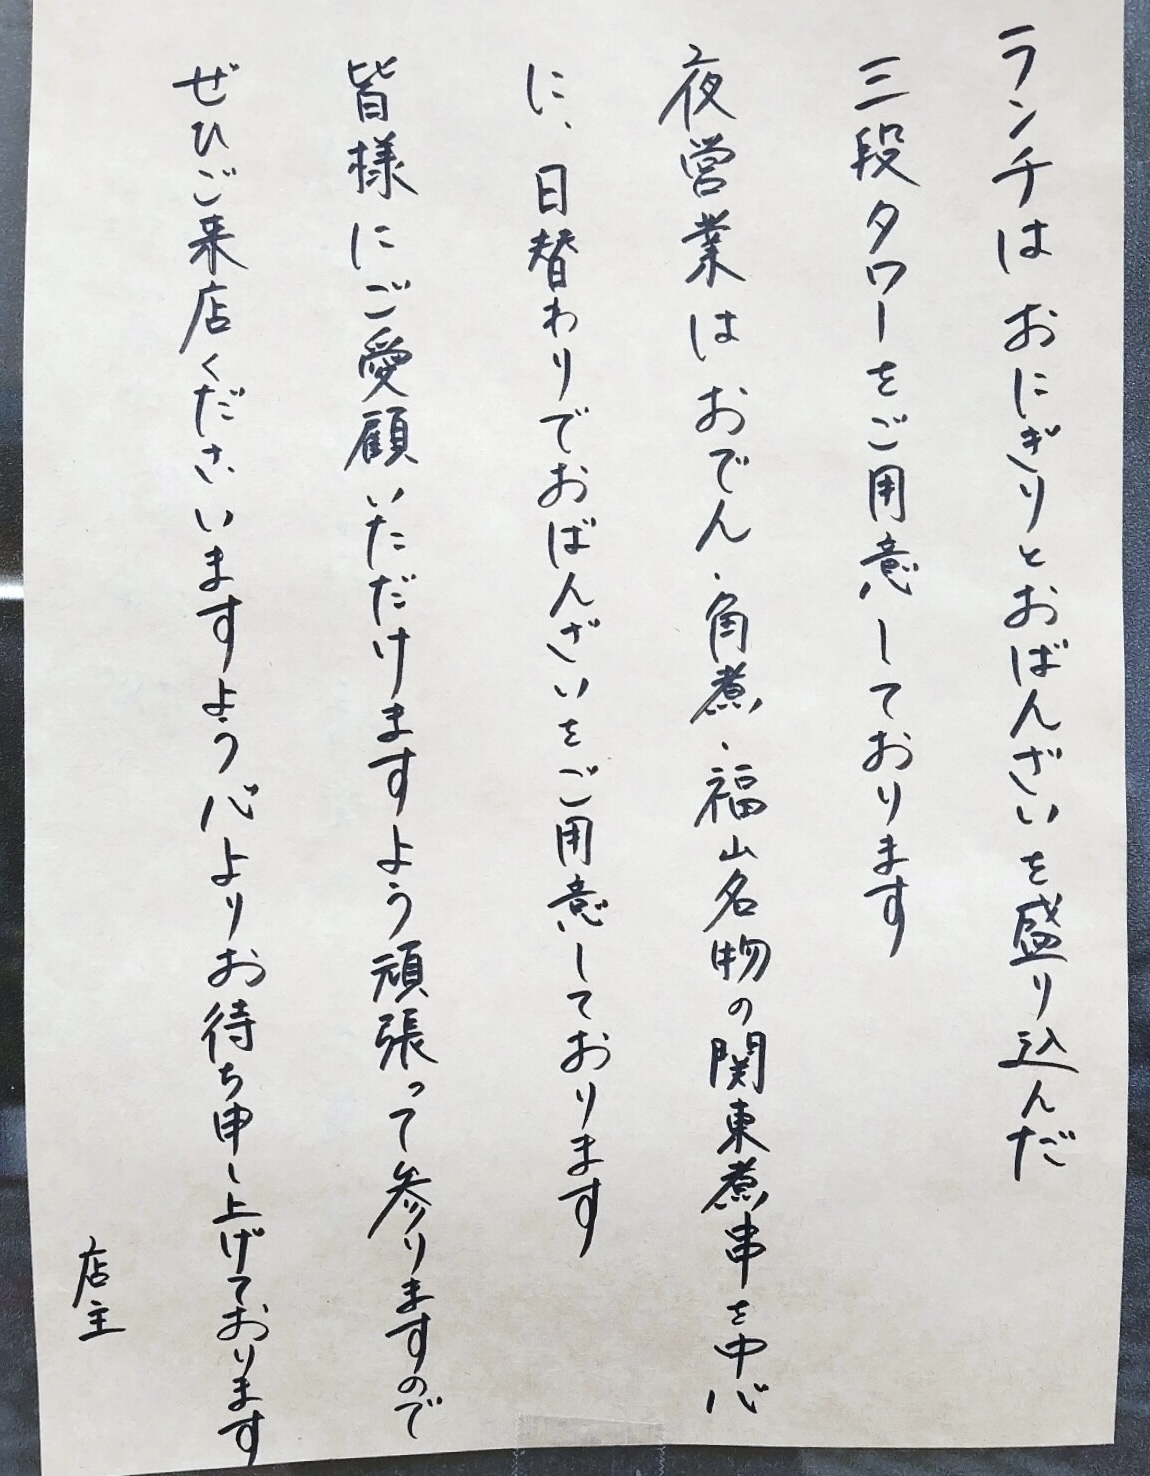 ランチは おにぎりとおばんざいを盛り込んだ
三段タワーをご用意しております
夜営業は おでん、角煮、福山名物の関東煮串を中心
に、日替わりでおばんざいをご用意しております
皆様にご愛顧いただけますよう頑張って参りますので
ぜひご来店くださいますよう心よりお待ち申し上げております
店主